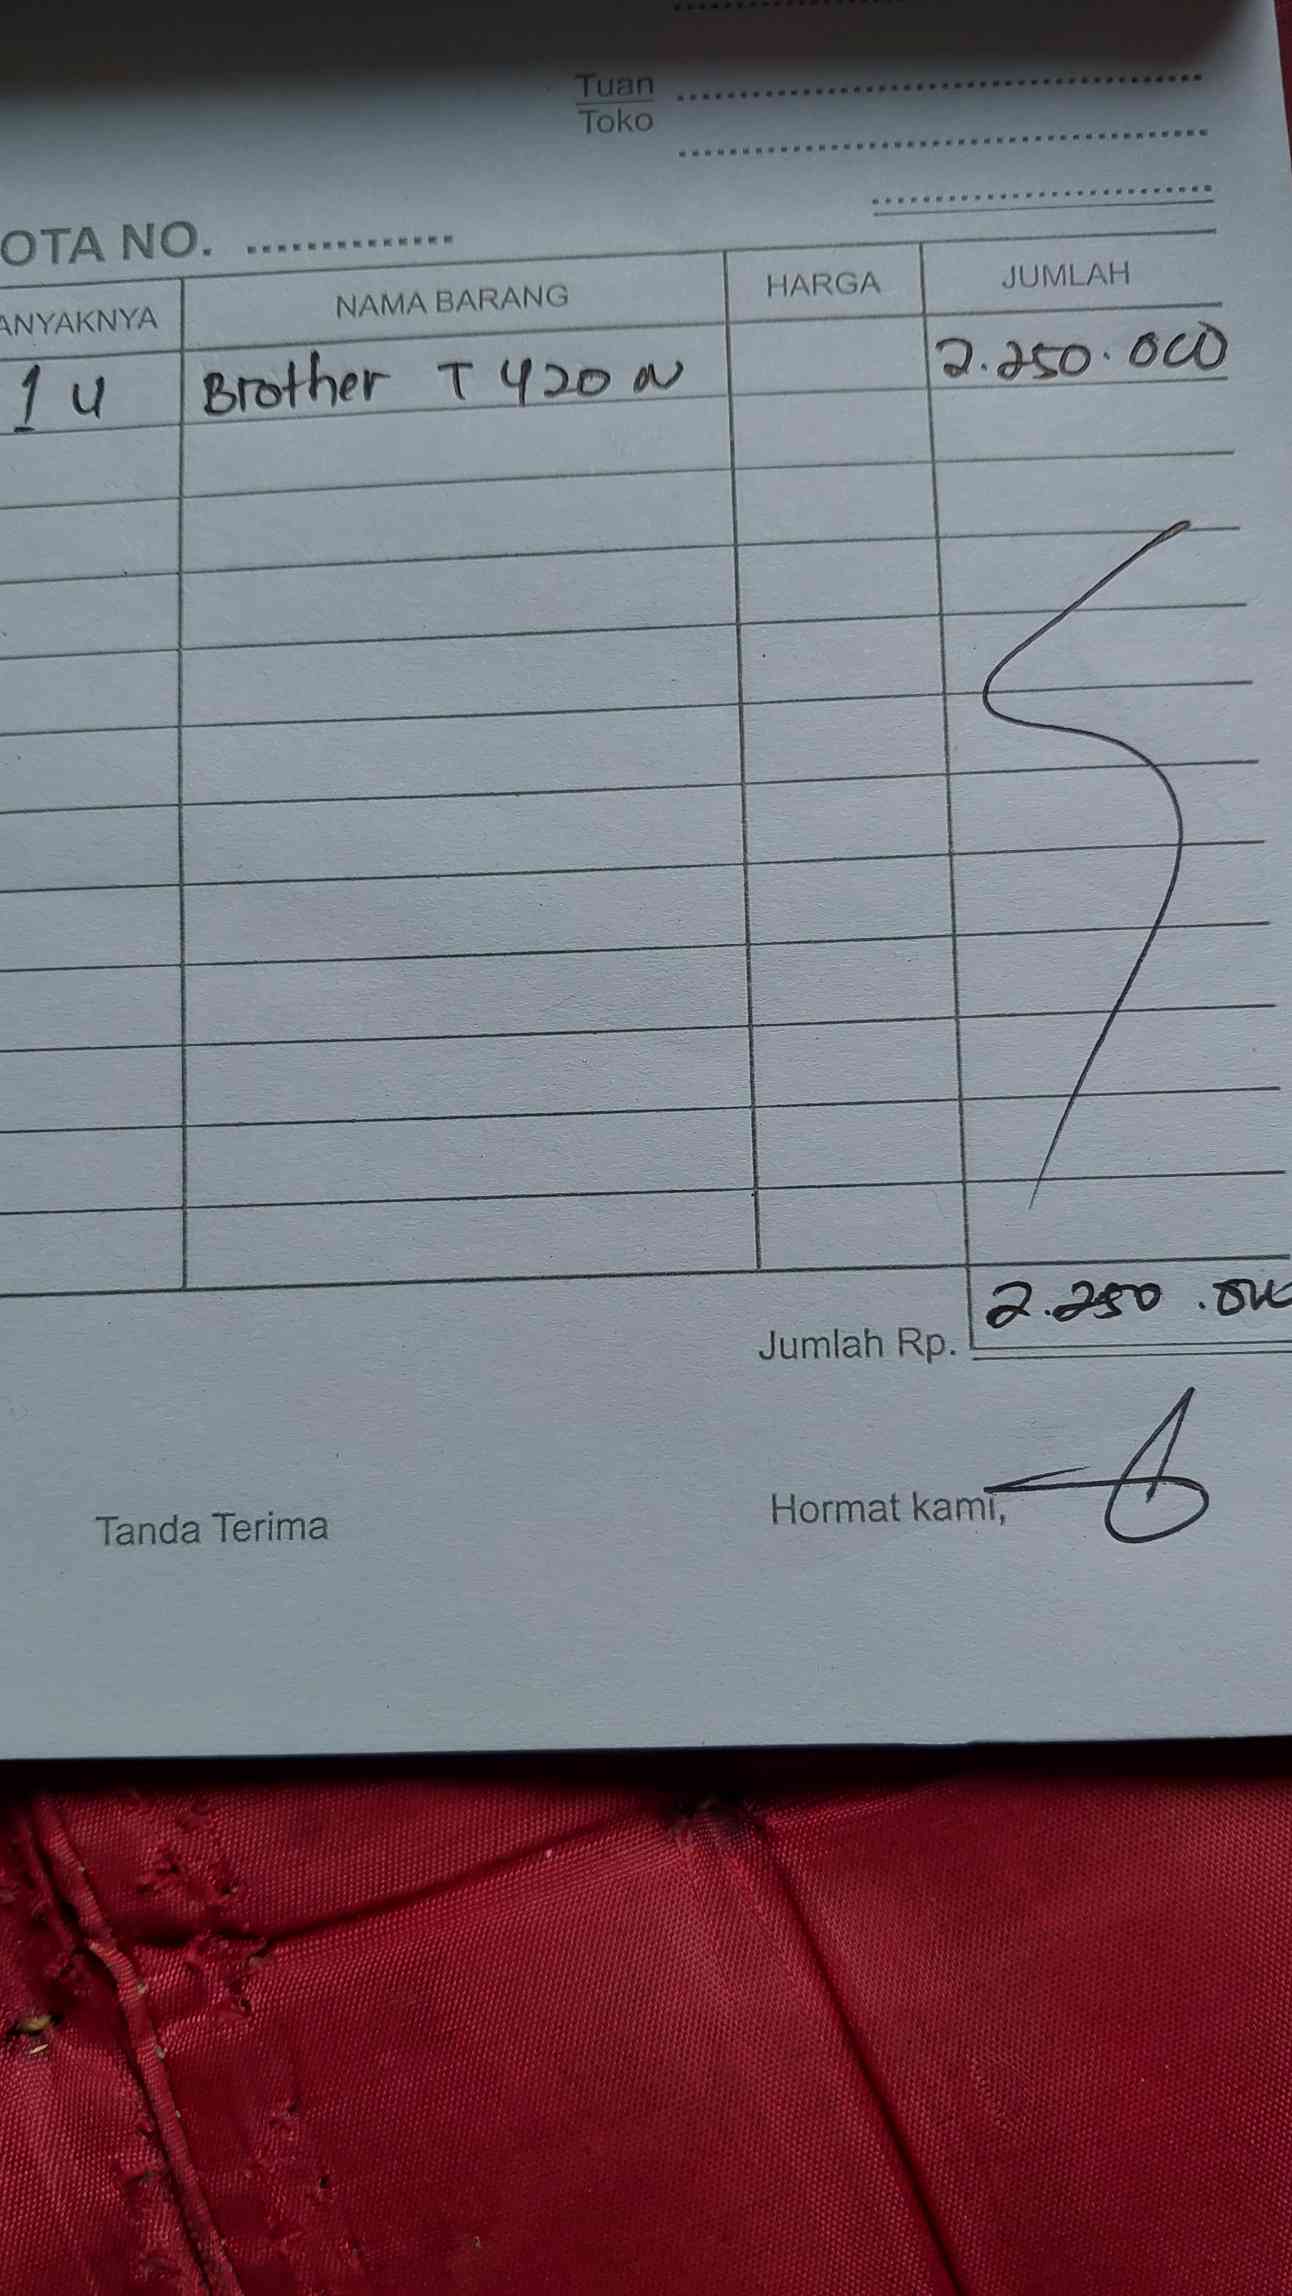 Tuan
Toko
OTA NO.
ANYAKNYA NAMA BARANG HARGA JUMLAH
1 U Brother T 420 W 2.250.000
Jumlah Rp. 2.250.000
Tanda Terima Hormat kami,